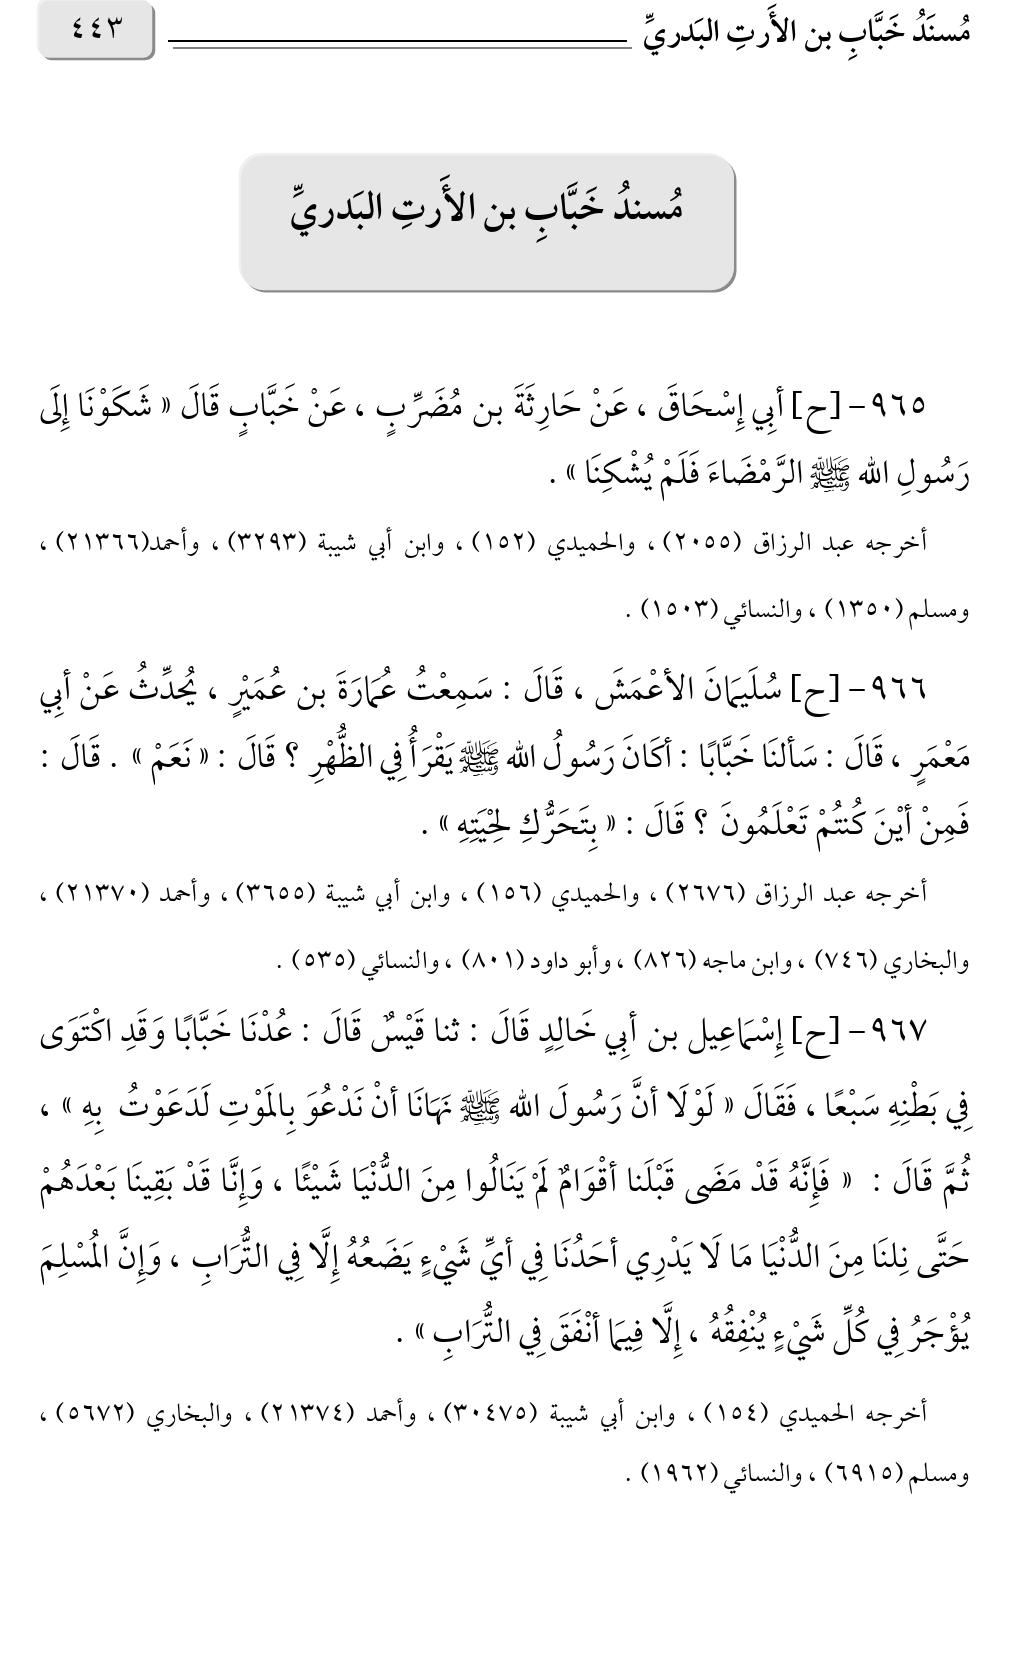 مُسنَدُ خَبَّابِ بن الأَرتِ البَدريِّ ٤٤٣
مُسندُ خَبَّابِ بن الأَرتِ البَدريِّ
٩٦٥ – [ح] أَبِي إِسْحَاقَ ، عَنْ حَارِثَةَ بن مُضَرِّبٍ ، عَنْ خَبَّابٍ قَالَ « شَكَوْنَا إِلَى
رَسُولِ الله ﷺ الرَّمْضَاءَ فَلَمْ يُشْكِنَا » .
أخرجه عبد الرزاق (٢٠٥٥) ، والحميدي (١٥٢) ، وابن أبي شيبة (٣٢٩٣) ، وأحمد(٢١٣٦٦) ،
ومسلم (١٣٥٠) ، والنسائي (١٥٠٣) .
٩٦٦ – [ح] سُلَيمَانَ الأعْمَشَ ، قَالَ : سَمِعْتُ عُمَارَةَ بن عُمَيْرٍ ، يُحدِّثُ عَنْ أبِي
مَعْمَرٍ ، قَالَ : سَألنَا خَبَّابًا : أكَانَ رَسُولُ الله ﷺ يَقْرَأُ فِي الظُّهْرِ ؟ قَالَ : « نَعَمْ » . قَالَ :
فَمِنْ أيْنَ كُنتُمْ تَعْلَمُونَ ؟ قَالَ : « بِتَحَرُّكِ لِحْيَتِهِ » .
أخرجه عبد الرزاق (٢٦٧٦) ، والحميدي (١٥٦) ، وابن أبي شيبة (٣٦٥٥) ، وأحمد (٢١٣٧٠) ،
والبخاري (٧٤٦) ، وابن ماجه (٨٢٦) ، وأبو داود (٨٠١) ، والنسائي (٥٣٥) .
٩٦٧ – [ح] إِسْمَاعِيل بن أبِي خَالِدٍ قَالَ : ثنا قَيْسٌ قَالَ : عُدْنَا خَبَّابًا وَقَدِ اكْتَوَى
فِي بَطْنِهِ سَبْعًا ، فَقَالَ « لَوْلَا أنَّ رَسُولَ الله ﷺ نَهَانَا أنْ نَدْعُوَ بِالمَوْتِ لَدَعَوْتُ بِهِ » ،
ثُمَّ قَالَ : « فَإِنَّهُ قَدْ مَضَى قَبْلَنا أقْوَامٌ لَمْ يَنَالُوا مِنَ الدُّنْيَا شَيْئًا ، وَإِنَّا قَدْ بَقِينَا بَعْدَهُمْ
حَتَّى نِلنَا مِنَ الدُّنْيَا مَا لَا يَدْرِي أحَدُنَا فِي أيِّ شَيْءٍ يَضَعُهُ إِلَّا فِي التُّرَابِ ، وَإِنَّ المُسْلِمَ
يُؤْجَرُ فِي كُلِّ شَيْءٍ يُنْفِقُهُ ، إِلَّا فِيمَا أنْفَقَ فِي التُّرَابِ » .
أخرجه الحميدي (١٥٤) ، وابن أبي شيبة (٣٠٤٧٥) ، وأحمد (٢١٣٧٤) ، والبخاري (٥٦٧٢) ،
ومسلم (٦٩١٥) ، والنسائي (١٩٦٢) .